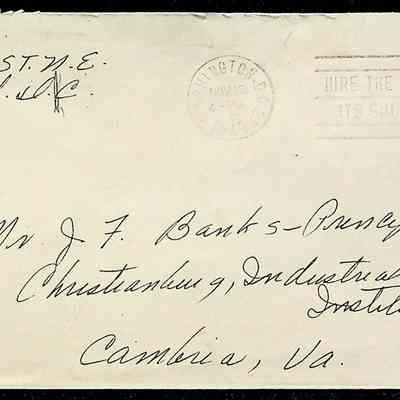 ST. N.E.
D.C.
WASHINGTON, D.C.
HIRE THE
ITS
Mr. J F. Banks - Princip
Christianburg, Industrial
Institu
Cambria, Va.